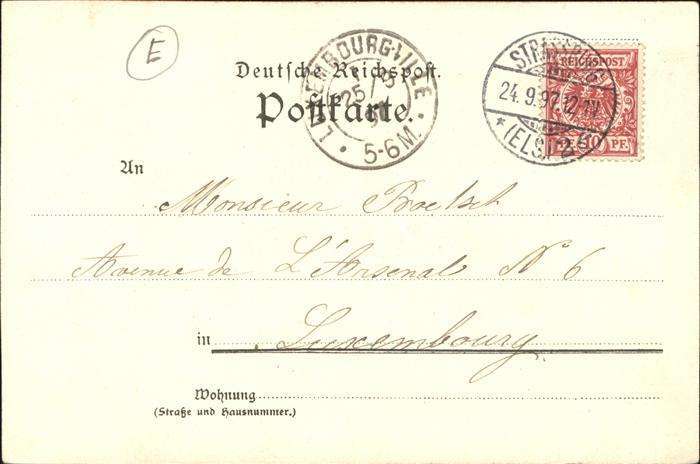 E
Deutsche Reichspost.
Postkarte.
LUXEMBOURG-VILLE
25
5-6M.
STRASSBURG
24.9.97.12-1V
* (ELS.) 2 c
REICHSPOST
10 PF.
An Monsieur
Avenue de L'Arsenal No 6
in Luxembourg
Wohnung
(Straße und Hausnummer.)